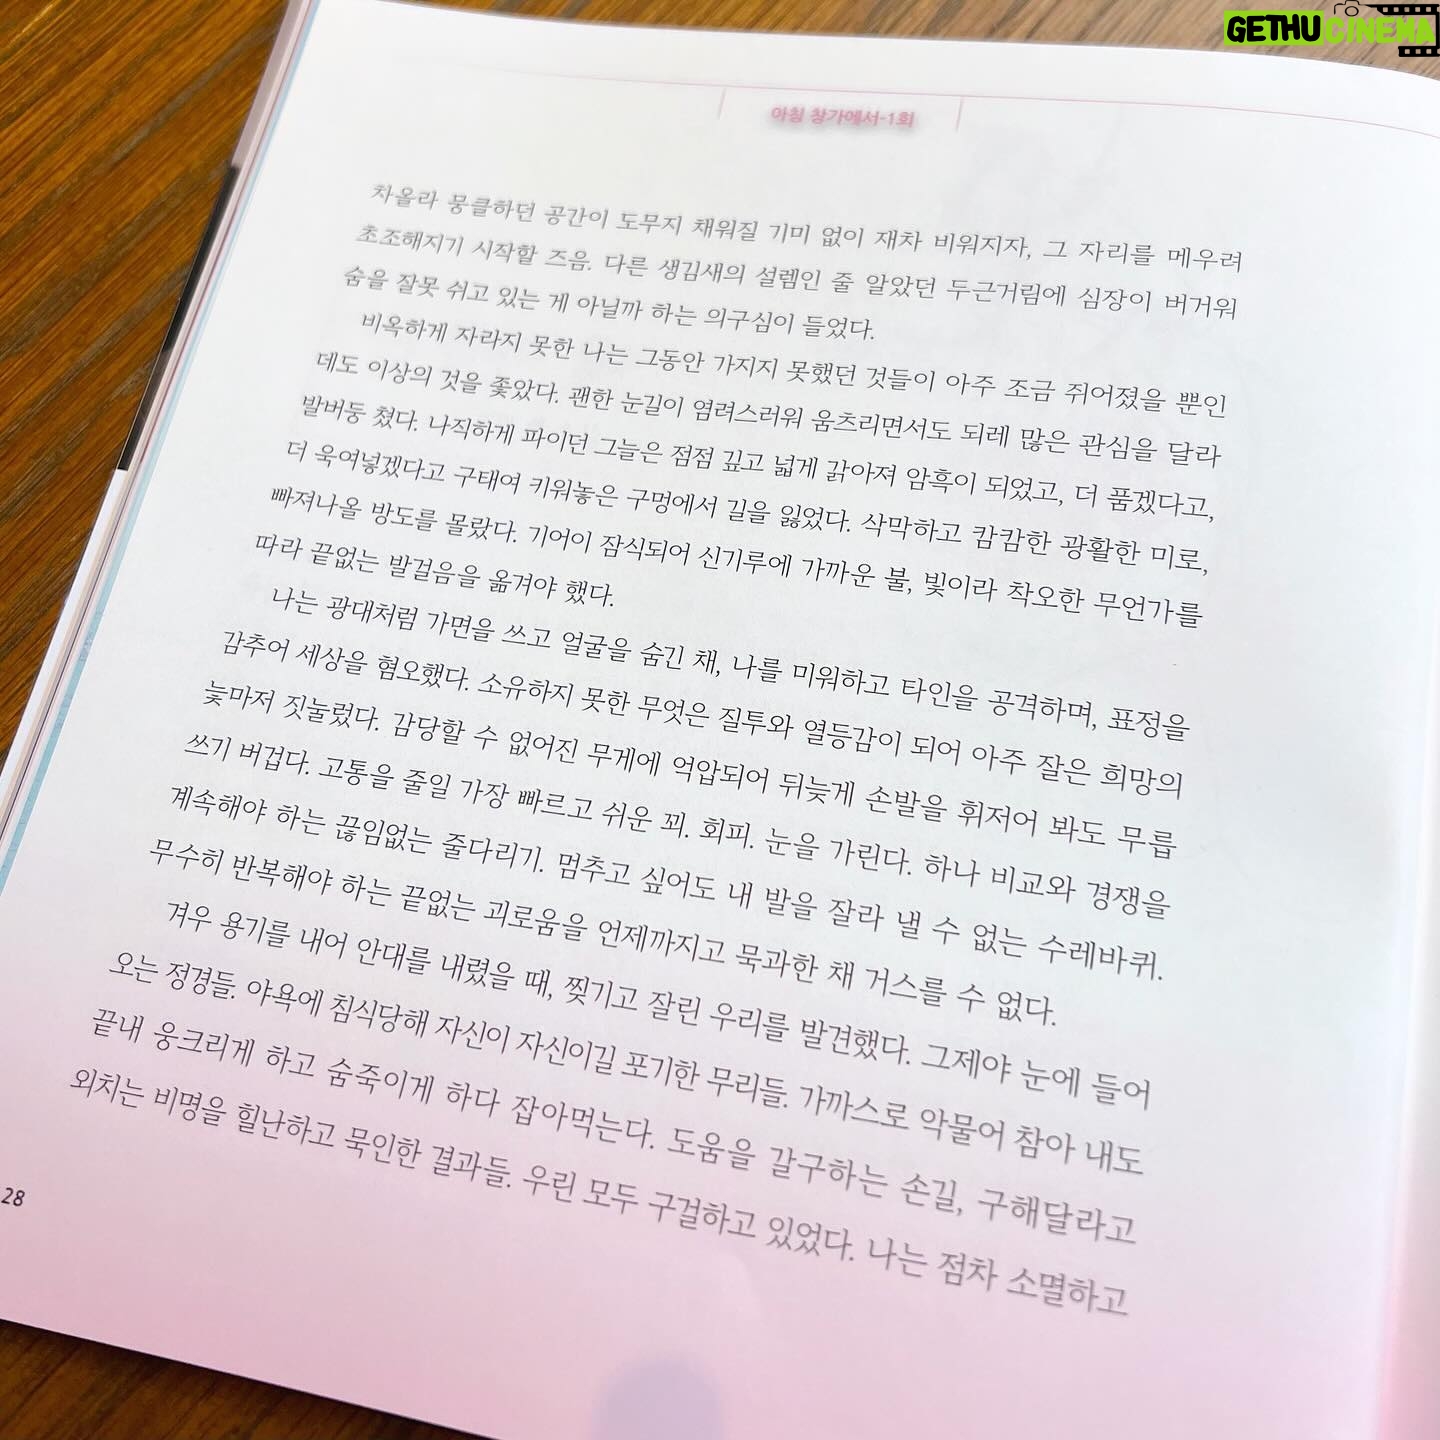 GETHU CINEMA
아침 창가에서-1회
차올라 뭉클하던 공간이 도무지 채워질 기미 없이 재차 비워지자, 그 자리를 메우려
초조해지기 시작할 즈음. 다른 생김새의 설렘인 줄 알았던 두근거림에 심장이 버거워
숨을 잘못 쉬고 있는 게 아닐까 하는 의구심이 들었다.
비옥하게 자라지 못한 나는 그동안 가지지 못했던 것들이 아주 조금 쥐어졌을 뿐인
데도 이상의 것을 좇았다. 괜한 눈길이 염려스러워 움츠리면서도 되레 많은 관심을 달라
발버둥 쳤다. 나직하게 파이던 그늘은 점점 깊고 넓게 갉아져 암흑이 되었고, 더 품겠다고,
더 욱여넣겠다고 구태여 키워놓은 구멍에서 길을 잃었다. 삭막하고 캄캄한 광활한 미로,
빠져나올 방도를 몰랐다. 기어이 잠식되어 신기루에 가까운 불, 빛이라 착오한 무언가를
따라 끝없는 발걸음을 옮겨야 했다.
나는 광대처럼 가면을 쓰고 얼굴을 숨긴 채, 나를 미워하고 타인을 공격하며, 표정을
감추어 세상을 혐오했다. 소유하지 못한 무엇은 질투와 열등감이 되어 아주 잘은 희망의
늧마저 짓눌렀다. 감당할 수 없어진 무게에 억압되어 뒤늦게 손발을 휘저어 봐도 무릅
쓰기 버겁다. 고통을 줄일 가장 빠르고 쉬운 꾀. 회피. 눈을 가린다. 하나 비교와 경쟁을
계속해야 하는 끊임없는 줄다리기. 멈추고 싶어도 내 발을 잘라 낼 수 없는 수레바퀴.
무수히 반복해야 하는 끝없는 괴로움을 언제까지고 묵과한 채 거스를 수 없다.
겨우 용기를 내어 안대를 내렸을 때, 찢기고 잘린 우리를 발견했다. 그제야 눈에 들어
오는 정경들. 야욕에 침식당해 자신이 자신이길 포기한 무리들. 가까스로 악물어 참아 내도
끝내 웅크리게 하고 숨죽이게 하다 잡아먹는다. 도움을 갈구하는 손길, 구해달라고
외치는 비명을 힐난하고 묵인한 결과들. 우린 모두 구걸하고 있었다. 나는 점차 소멸하고
28